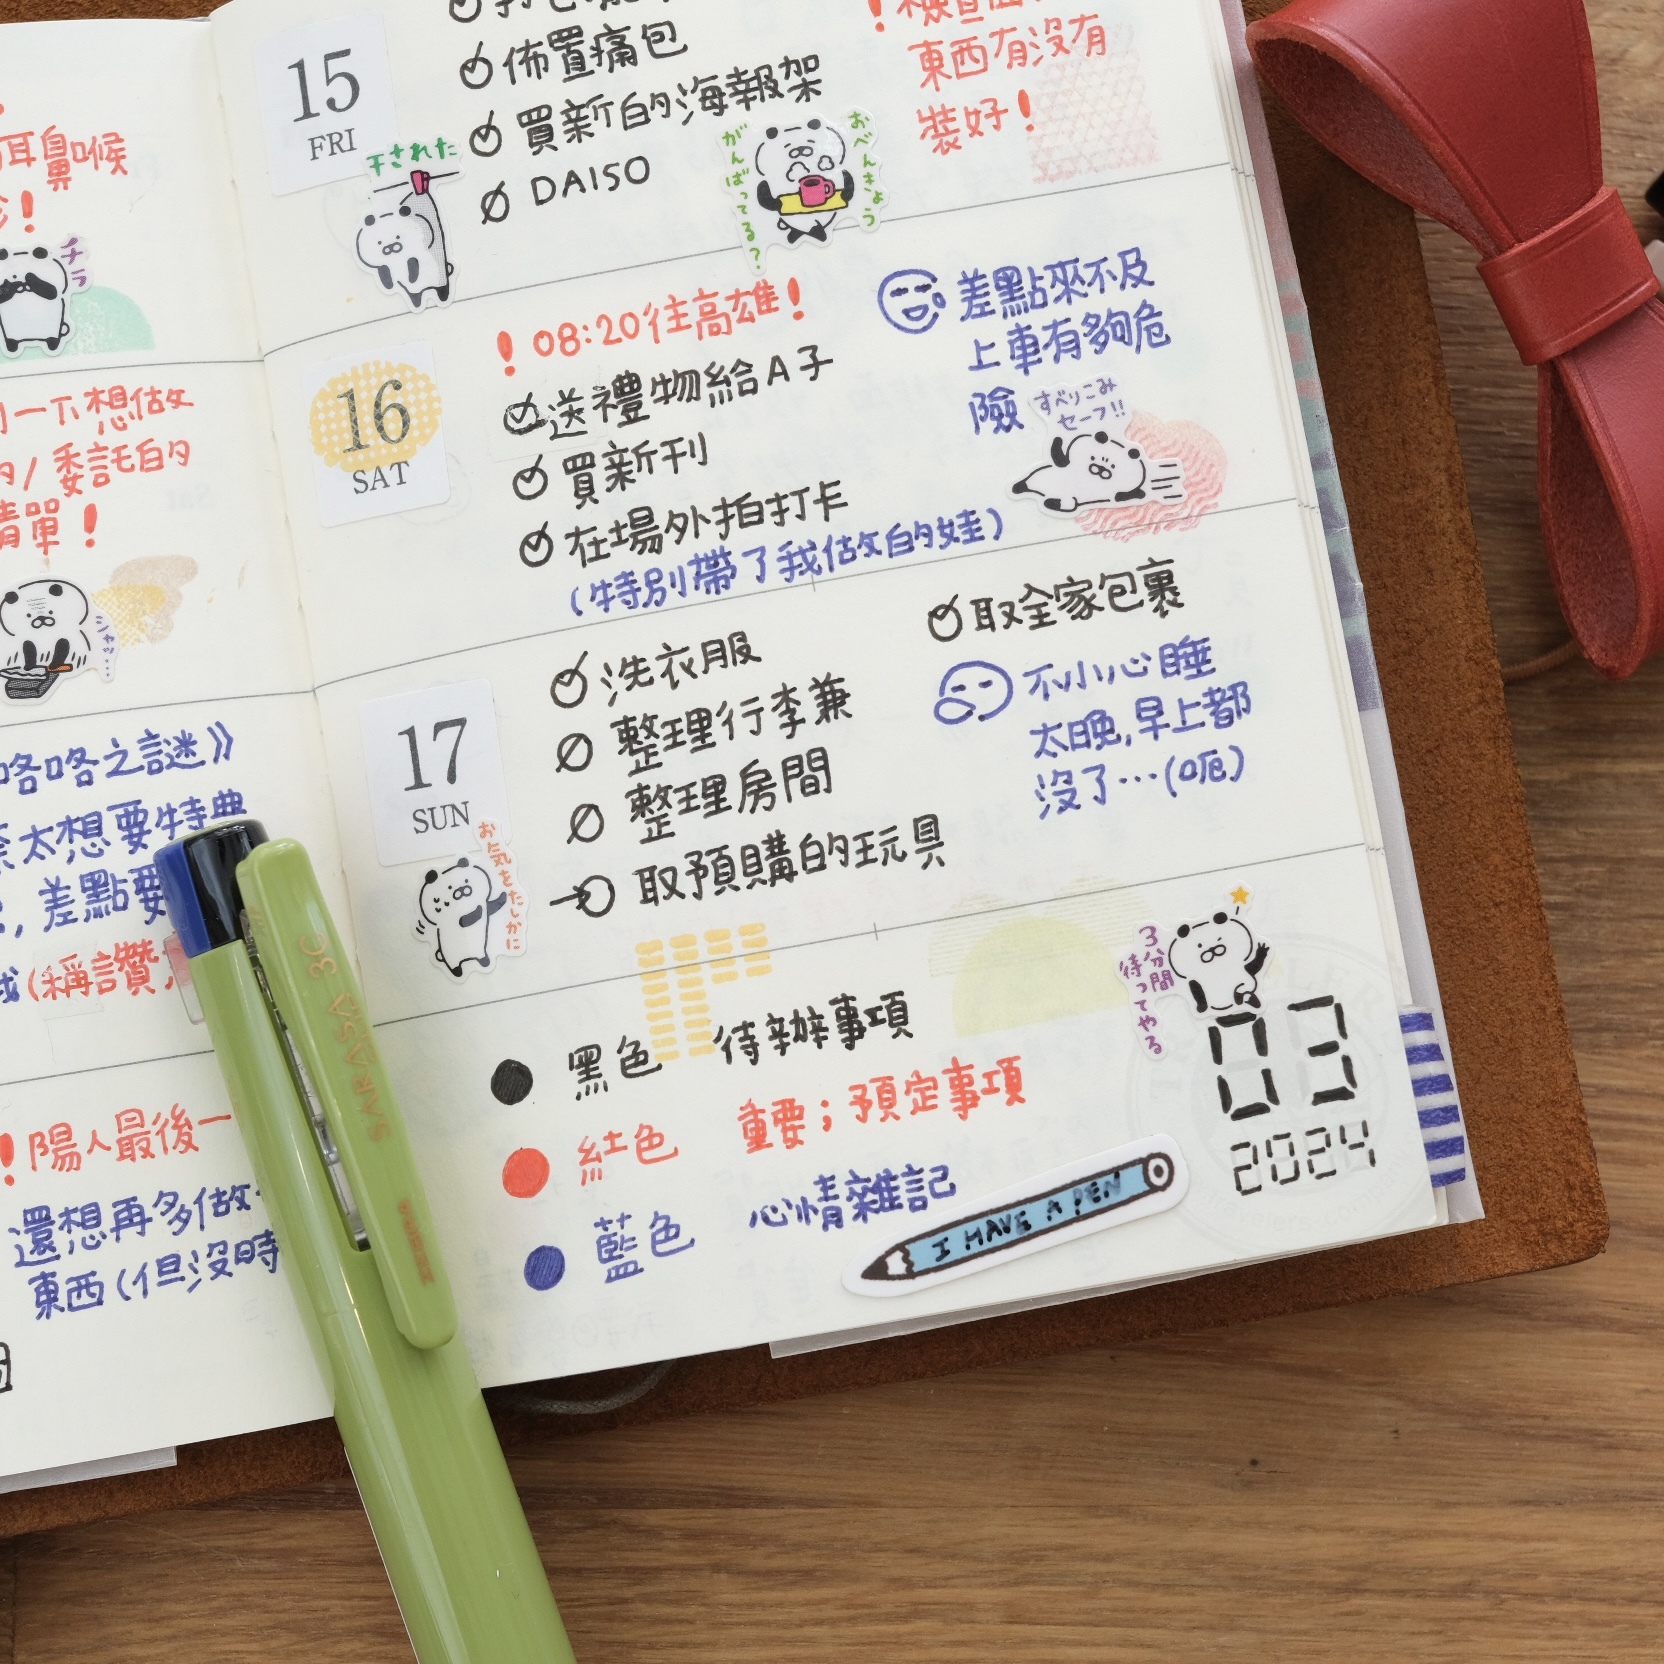 耳鼻喉
!
チラ
一下想做
/委託的
清單!
シャッ…
咯咯之謎》
太想要特典
,差點要
(稱讚)
!陽人最後一
還想再多做
東西(但沒時
15
FRI
干された
佈置痛包
買新的海報架
DAISO
がんばってる?
おべんきょう
!檢查
東西有沒有
裝好!
16
SAT
!08:20往高雄!
送禮物給A子
買新刊
在場外拍打卡
(特別帶了我做的娃)
差點來不及
上車有夠危
險
すべりこみ
セーフ!!
17
SUN
お気をたしかに
洗衣服
整理行李兼
整理房間
取預購的玩具
取全家包裹
不小心睡
太晚,早上都
沒了…(呃)
黑色 待辦事項
紅色 重要;預定事項
藍色 心情雜記
3分間
待ってやる
03
2024
I HAVE A PEN
SARASA 3C